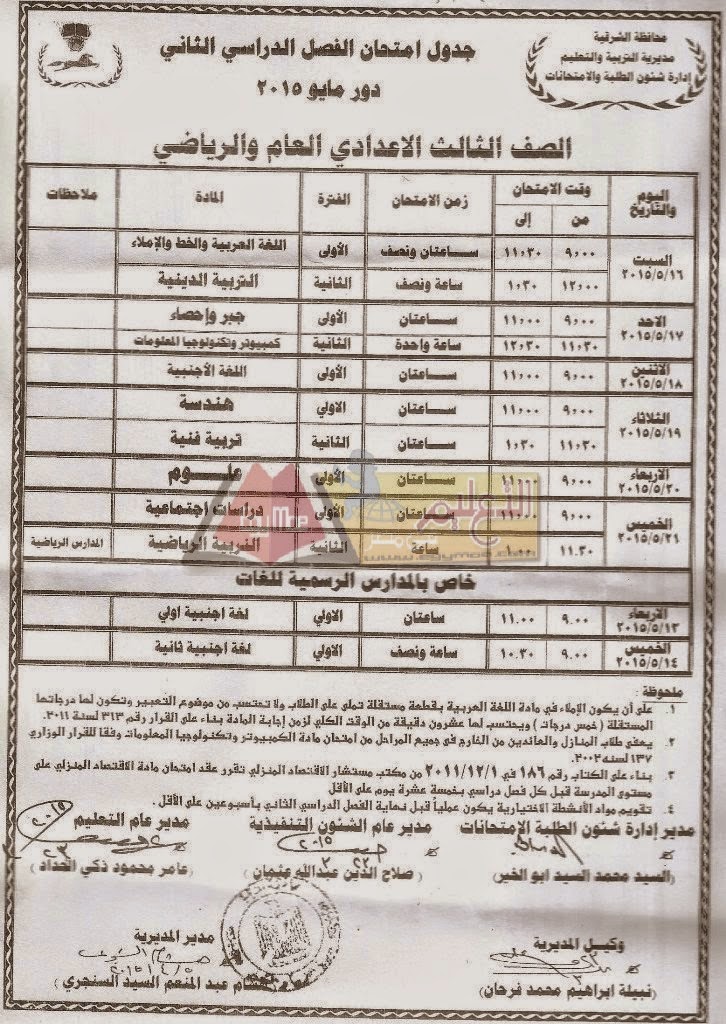 محافظة الشرقية
مديرية التربية والتعليم
إدارة شئون الطلبة والامتحانات
جدول امتحان الفصل الدراسي الثاني
دور مايو ٢٠١٥
الصف الثالث الاعدادي العام والرياضي
اليوم والتاريخ وقت الامتحان زمن الامتحان الفترة المادة ملاحظات
من إلى
السبت ٢٠١٥/٥/١٦ ٩,٠٠ ١١,٣٠ ساعتان ونصف الأولى اللغة العربية والخط والإملاء
١٢,٠٠ ١,٣٠ ساعة ونصف الثانية التربية الدينية
الاحد ٢٠١٥/٥/١٧ ٩,٠٠ ١١,٠٠ ساعتان الأولى جبر وإحصاء
١١,٣٠ ١٢,٣٠ ساعة واحدة الثانية كمبيوتر وتكنولوجيا المعلومات
الاثنين ٢٠١٥/٥/١٨ ٩,٠٠ ١١,٠٠ ساعتان الأولى اللغة الأجنبية
الثلاثاء ٢٠١٥/٥/١٩ ٩,٠٠ ١١,٠٠ ساعتان الاولي هندسة
١١,٣٠ ١,٣٠ ساعتان الثانية تربية فنية
الاربعاء ٢٠١٥/٥/٢٠ ٩,٠٠ ١١,٠٠ ساعتان الأولى علوم
الخميس ٢٠١٥/٥/٢١ ٩,٠٠ ١١,٠٠ ساعتان الأولى دراسات اجتماعية
١١.٣٠ ١.٠٠ ساعة الثانية التربية الرياضية المدارس الرياضية
التعليم
خاص بالمدارس الرسمية للغات
الاربعاء ٢٠١٥/٥/١٣ ٩.٠٠ ١١.٠٠ ساعتان الاولي لغة اجنبية اولي
الخميس ٢٠١٥/٥/١٤ ٩.٠٠ ١٠.٣٠ ساعة ونصف الاولي لغة اجنبية ثانية
ملحوظة :
١. على أن يكون الإملاء في مادة اللغة العربية بقطعة مستقلة تملى على الطلاب ولا تحتسب من موضوع التعبير وتكون لها درجاتها
المستقلة ( خمس درجات ) ويحتسب لها عشرون دقيقة من الوقت الكلي لزمن إجابة المادة بناء على القرار رقم ٣١٣ لسنة ٢٠١١.
٢. يعفى طلاب المنازل والعائدين من الخارج في جميع المراحل من امتحان مادة الكمبيوتر وتكنولوجيا المعلومات وفقا للقرار الوزاري
١٣٧ لسنه ٢٠٠٢
٣. بناء على الكتاب رقم ١٨٦ في ٢٠١١/١٢/١ من مكتب مستشار الاقتصاد المنزلي تقرر عقد امتحان مادة الاقتصاد المنزلي على
مستوى المدرسة قبل كل فصل دراسي بخمسة عشرة يوم على الأقل
٤. تقويم مواد الأنشطة الاختيارية يكون عملياً قبل نهاية الفصل الدراسي الثاني بأسبوعين على الأقل.
مدير إدارة شئون الطلبة الإمتحانات مدير عام الشئون التنفيذية مدير عام التعليم
(السيد محمد السيد ابو الخير) (صلاح الدين عبدالله عثمان) (عامر محمود ذكي الحداد)
وكيل المديرية مدير المديرية
(نبيلة ابراهيم محمد فرحان) هشام عبد المنعم السيد السنجري)